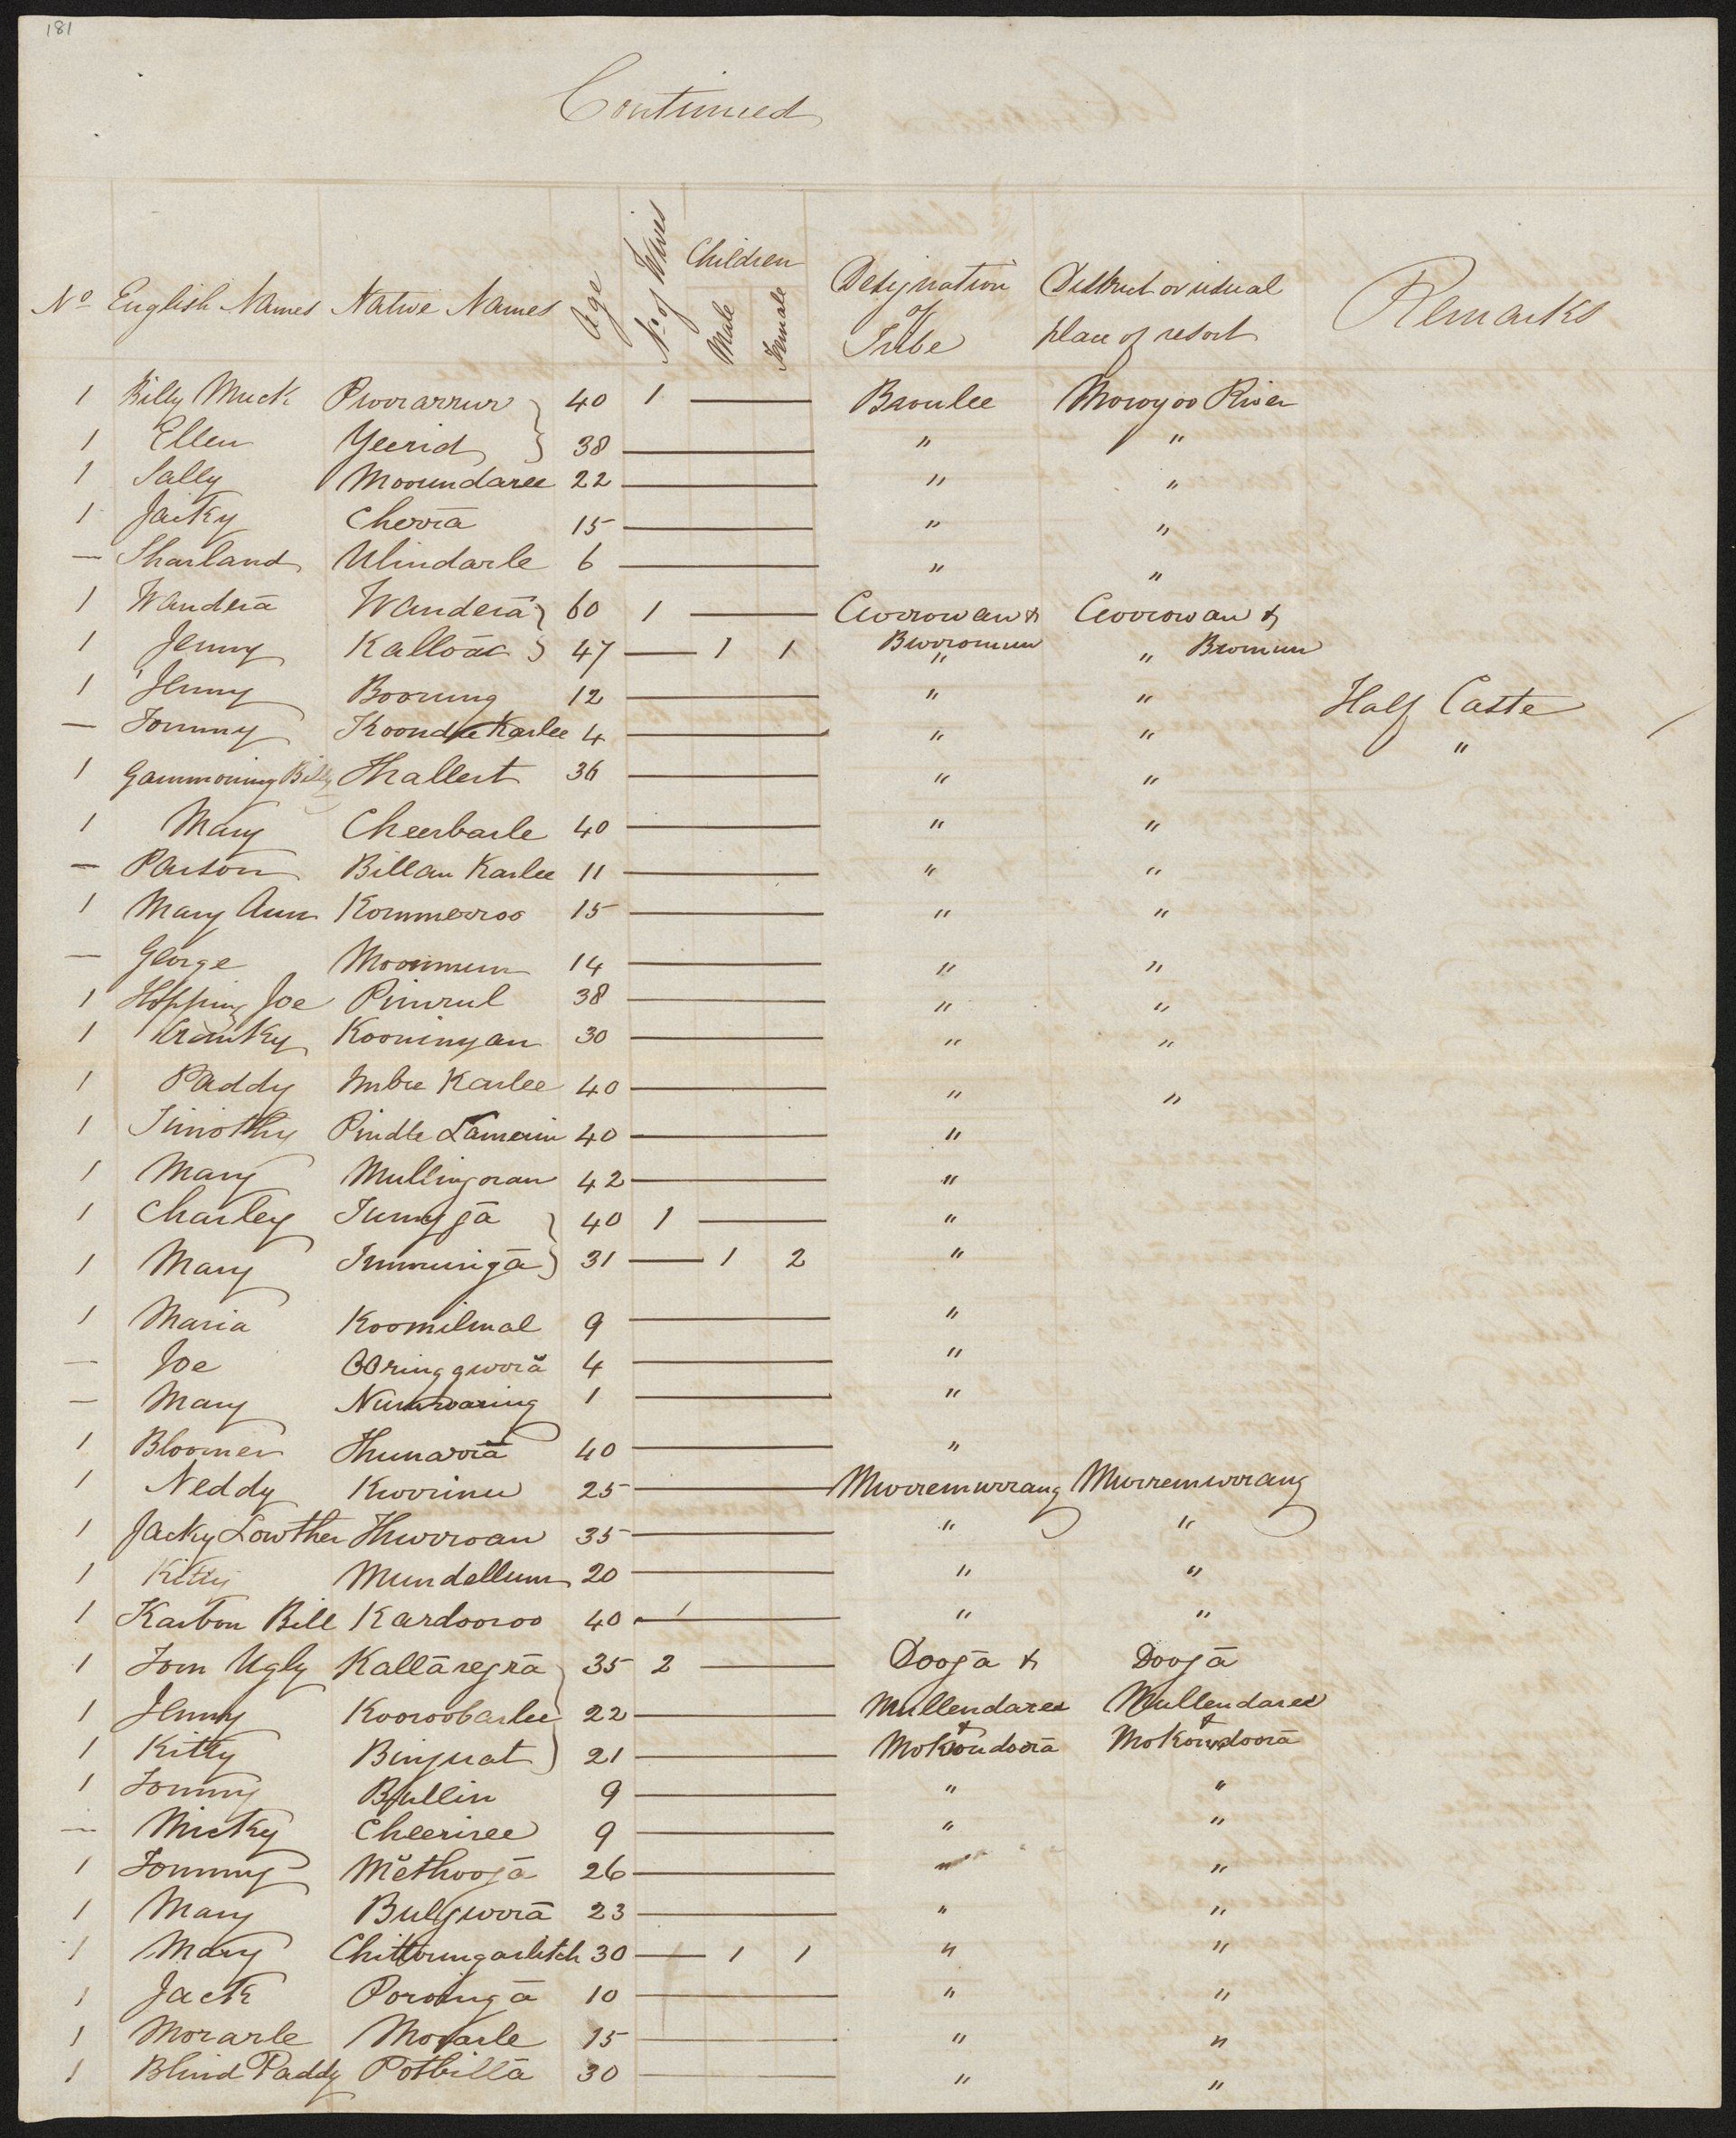 181
Continued
No English Names Native Names Age No of Wives Children Male Female Designation of Tribe District or usual place of resort Remarks
1 Billy Muck Pwoorarrur 40 1 — Baoulee Moroyoo River
1 Ellen Yeerid 38 — " "
1 Sally Moorundaree 22 — " "
1 Jacky Cheroiā 15 — " "
— Sharland Ulindarle 6 — " "
1 Wanderā Wanderā 60 1 — Coorrowan & Coorrowan &
Burromun Bromun
1 Jenny Kalloāc 47 — 1 1 " "
1 Jenny Boorung 12 — " " Half Caste
— Tommy Koondee Karlee 4 — " " "
1 Gammoning Billy Thallert 36 — " "
1 Mary Cheerbarle 40 — " "
— Parson Billau Karlee 11 — " "
1 Mary Ann Kommerroo 15 — " "
— George Moonmun 14 — " "
1 Hopping Joe Pinrul 38 — " "
1 Cranky Kooninyan 30 — " "
1 Paddy Imbie Karlee 40 — " "
1 Timothy Pindle Lamerin 40 — "
1 Mary Mullingrau 42 — "
1 Charley Jumggā 40 1 — "
1 Mary Immurigā 31 — 1 2 "
1 Maria Koomilmal 9 — "
— Joe OOringgworā 4 — "
— Mary Nunwaring 1 — "
1 Bloomer Thunaroiā 40 — "
1 Neddy Kworinu 25 — Murremurrang Murremurrang
1 Jacky Lowther Thurroan 35 — " "
1 Kitty Mundellum 20 — " "
1 Karbon Bill Kardooroo 40 — 1 — " "
1 Tom Ugly Kallāregrā 35 2 — Doogā & Doogā
1 Jenny Kooroobarlee 22 — Mullendaree Mullendaree
& &
1 Kitty Binguat 21 — Mokoudoorā Mokoudoorā
1 Tommy Bullin 9 — " "
— Micky Cheeriree 9 — " "
1 Tommy Mĕthoogā 26 — " "
1 Mary Bulgworā 23 — " "
1 Mary Chittoungarlitch 30 — 1 1 " "
1 Jack Poroingā 10 — " "
1 Morarle Morarle 15 — " "
1 Blind Paddy Potbillā 30 — " "